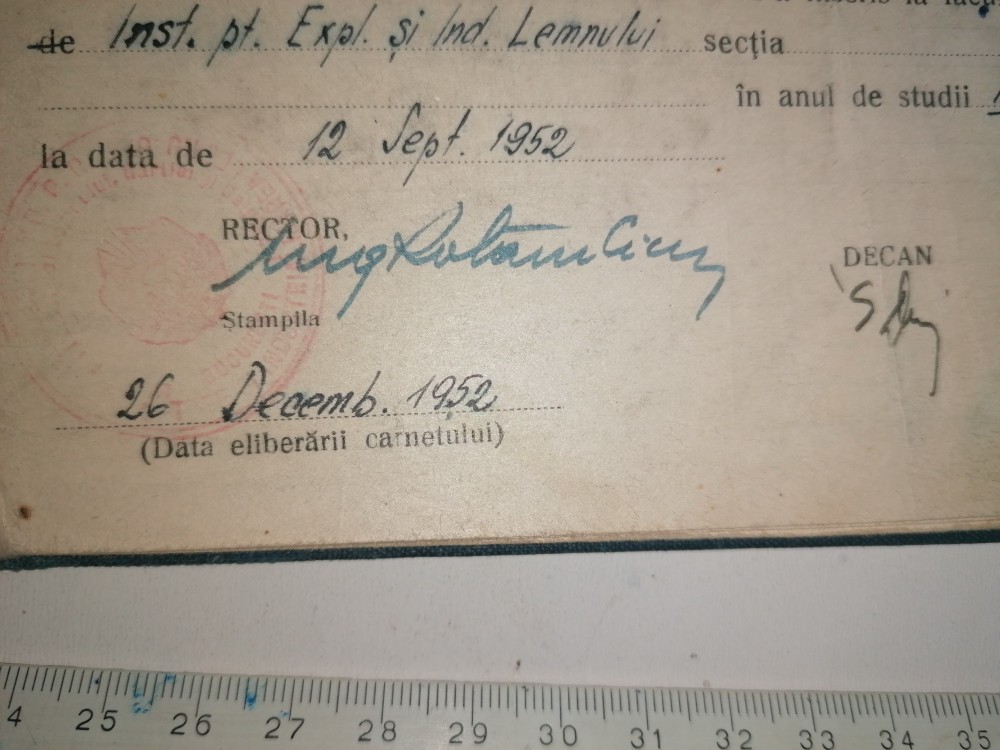 de Inst. pt. Expl. și Ind. Lemnului secția
în anul de studii
la data de 12 Sept. 1952
RECTOR,
DECAN
Ștampila
26 Decemb. 1952
(Data eliberării carnetului)
4 25 26 27 28 29 30 31 32 33 34 35